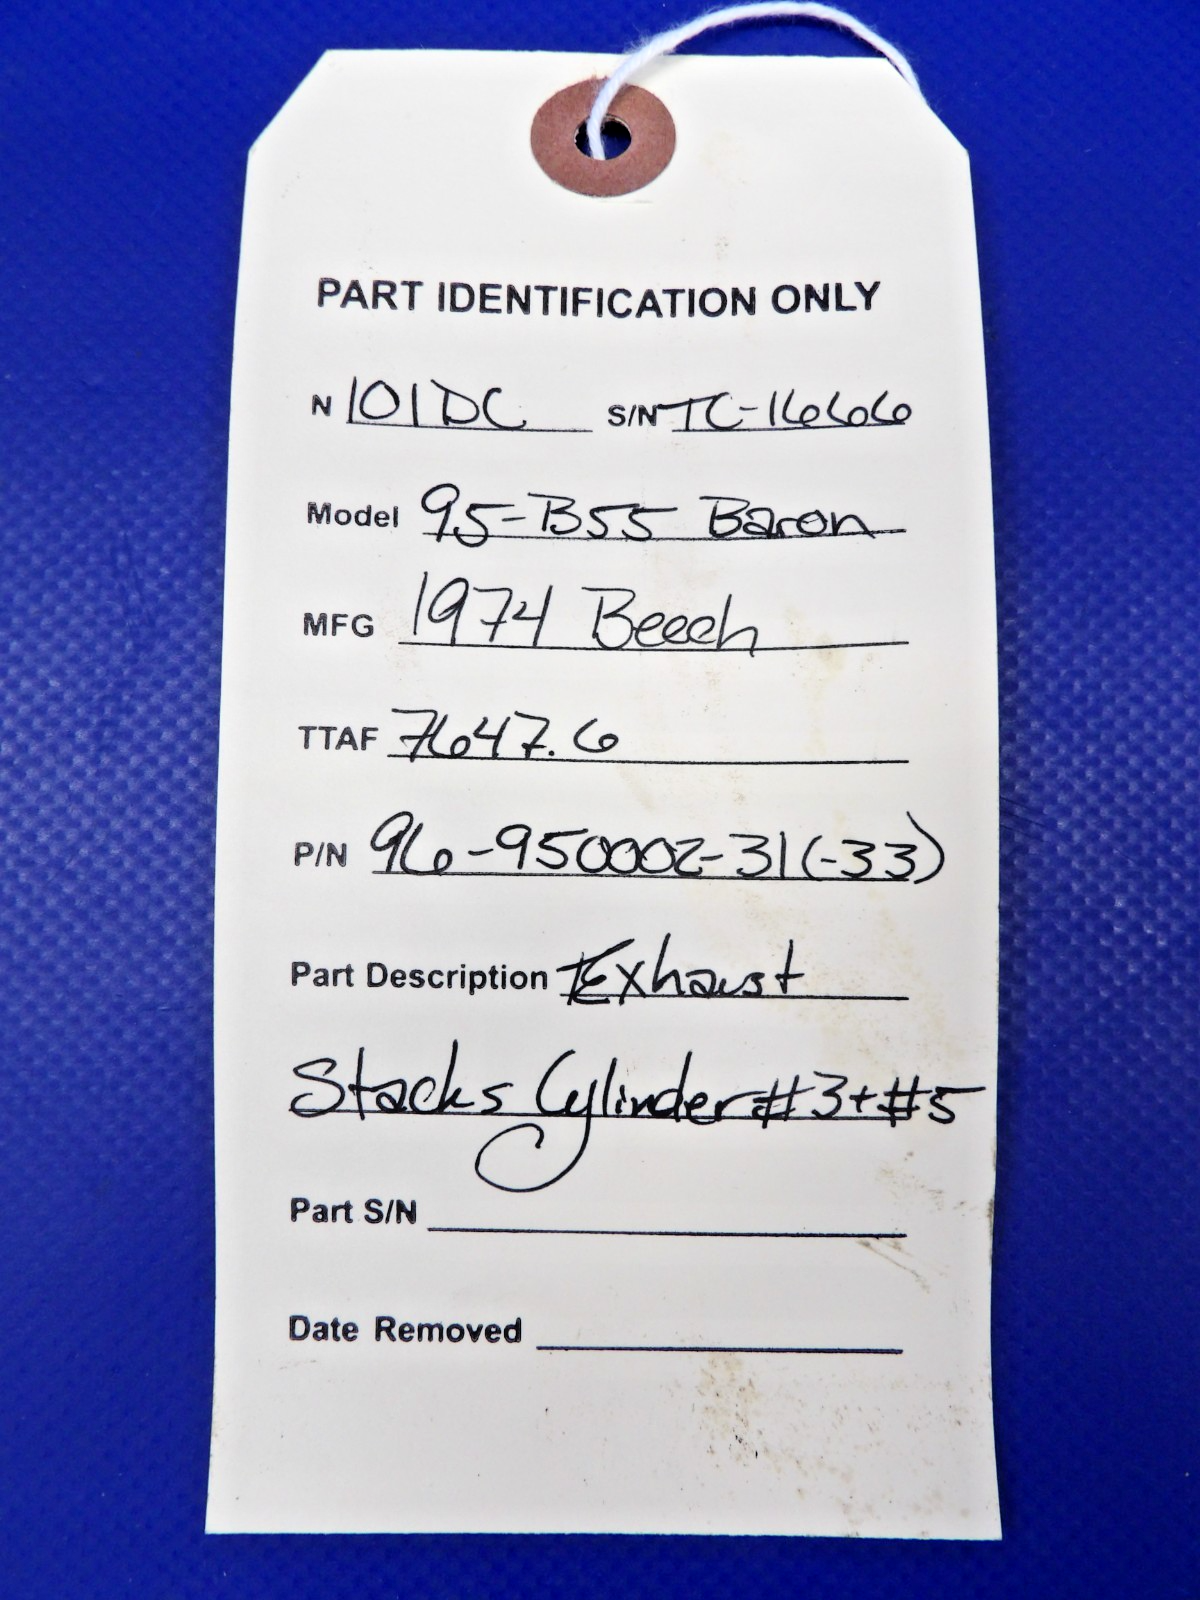 PART IDENTIFICATION ONLY
N 101DC S/N TC-1666
Model 95-B55 Baron
MFG 1974 Beech
TTAF 7647.6
P/N 96-950002-31(-33)
Part Description Exhaust
Stacks Cylinder #3+#5
Part S/N
Date Removed